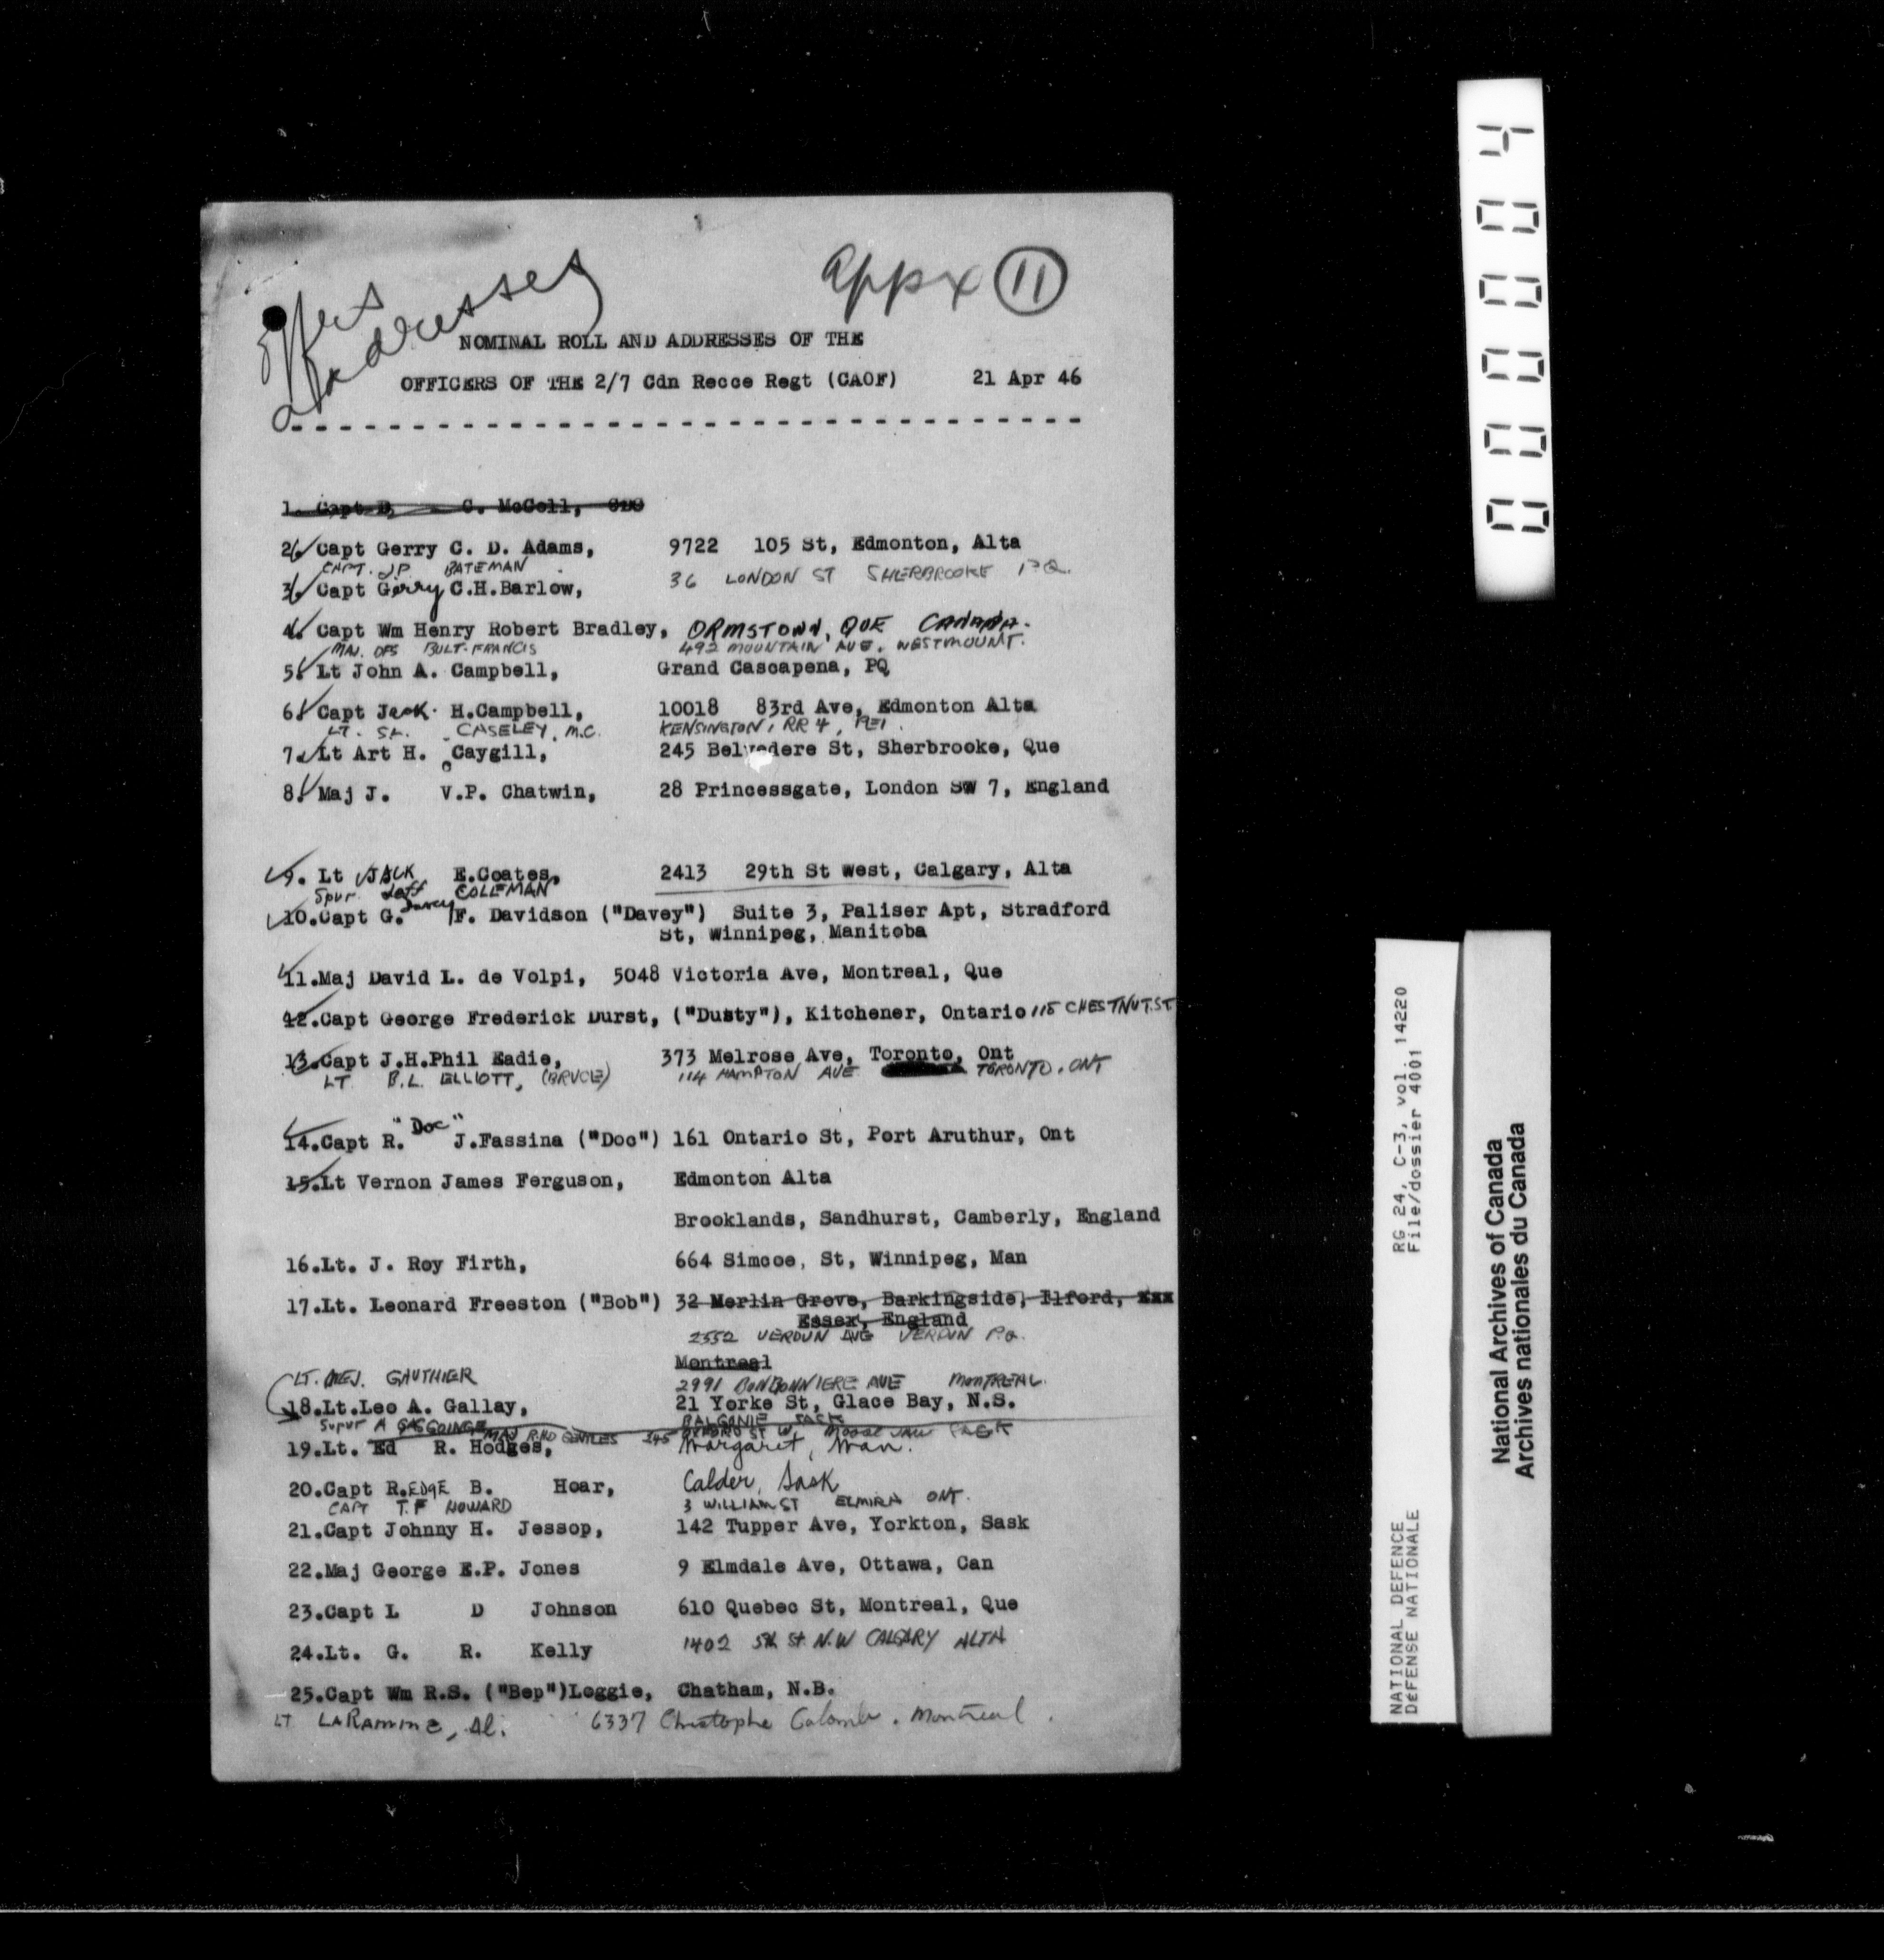 Offrs
addresses
appx 11
NOMINAL ROLL AND ADDRESSES OF THE
OFFICERS OF THE 2/7 Cdn Recce Regt (CAOF) 21 Apr 46
1. Capt D C. McColl,
2. Capt Gerry C. D. Adams, 9722 105 St, Edmonton, Alta
CAPT. J.P. BATEMAN 36 LONDON ST SHERBROOKE P.Q.
3. Capt Gerry C.H.Barlow,
4. Capt Wm Henry Robert Bradley, ORMSTOWN, QUE CANADA.
BULT-FRANCIS 492 MOUNTAIN AVE. WESTMOUNT.
5. Lt John A. Campbell, Grand Cascapena, PQ
6. Capt Jack H.Campbell, 10018 83rd Ave, Edmonton Alta
LT. CASELEY, M.C. KENSINGTON, RR 4, PEI.
7. Lt Art H. Caygill, 245 Belvedere St, Sherbrooke, Que
8. Maj J. V.P. Chatwin, 28 Princessgate, London SW 7, England
9. Lt JACK E.Coates, 2413 29th St West, Calgary, Alta
Spvr Jeff COLEMAN
10.Capt G. Davey F. Davidson ("Davey") Suite 3, Paliser Apt, Stradford
St, Winnipeg, Manitoba
11.Maj David L. de Volpi, 5048 Victoria Ave, Montreal, Que
12.Capt George Frederick Durst, ("Dusty"), Kitchener, Ontario 115 CHESTNUT.ST
13.Capt J.H.Phil Eadie, 373 Melrose Ave, Toronto, Ont
LT B.L. ELLIOTT, (BRUCE) 114 HAMPTON AVE TORONTO. ONT
14.Capt R. "Doc" J.Fassina ("Doc") 161 Ontario St, Port Aruthur, Ont
15.Lt Vernon James Ferguson, Edmonton Alta
Brooklands, Sandhurst, Camberly, England
16.Lt. J. Roy Firth, 664 Simcoe, St, Winnipeg, Man
17.Lt. Leonard Freeston ("Bob") 32 Merlin Grove, Barkingside, Ilford, xxx
Essex, England
2552 VERDUN AVE VERDUN P.Q.
Montreal
LT. GAUTHIER 2991 BONBONNIERE AVE MONTREAL.
18.Lt.Leo A. Gallay, 21 Yorke St, Glace Bay, N.S.
Supvr A GASGOINGE BALGONIE SASK
MAJ R.HD GENTLES 345 OXFORD ST W. MOOSE JAW SASK
19.Lt. Ed R. Hodges, Margaret, Man.
20.Capt R.EDGE B. Hoar, Calder, Sask
CAPT T.F HOWARD 3 WILLIAM ST ELMIRA ONT.
21.Capt Johnny H. Jessop, 142 Tupper Ave, Yorkton, Sask
22.Maj George E.P. Jones 9 Elmdale Ave, Ottawa, Can
23.Capt L D Johnson 610 Quebec St, Montreal, Que
24.Lt. G. R. Kelly 1402 5th St N.W CALGARY ALTA
25.Capt Wm R.S. ("Bep")Loggie, Chatham, N.B.
LT LARAMME, Al. 6337 Christophe Colomb. Montreal.
000004
RG 24, C-3, vol. 14220
File/dossier 4001
NATIONAL DEFENCE
DÉFENSE NATIONALE
National Archives of Canada
Archives nationales du Canada